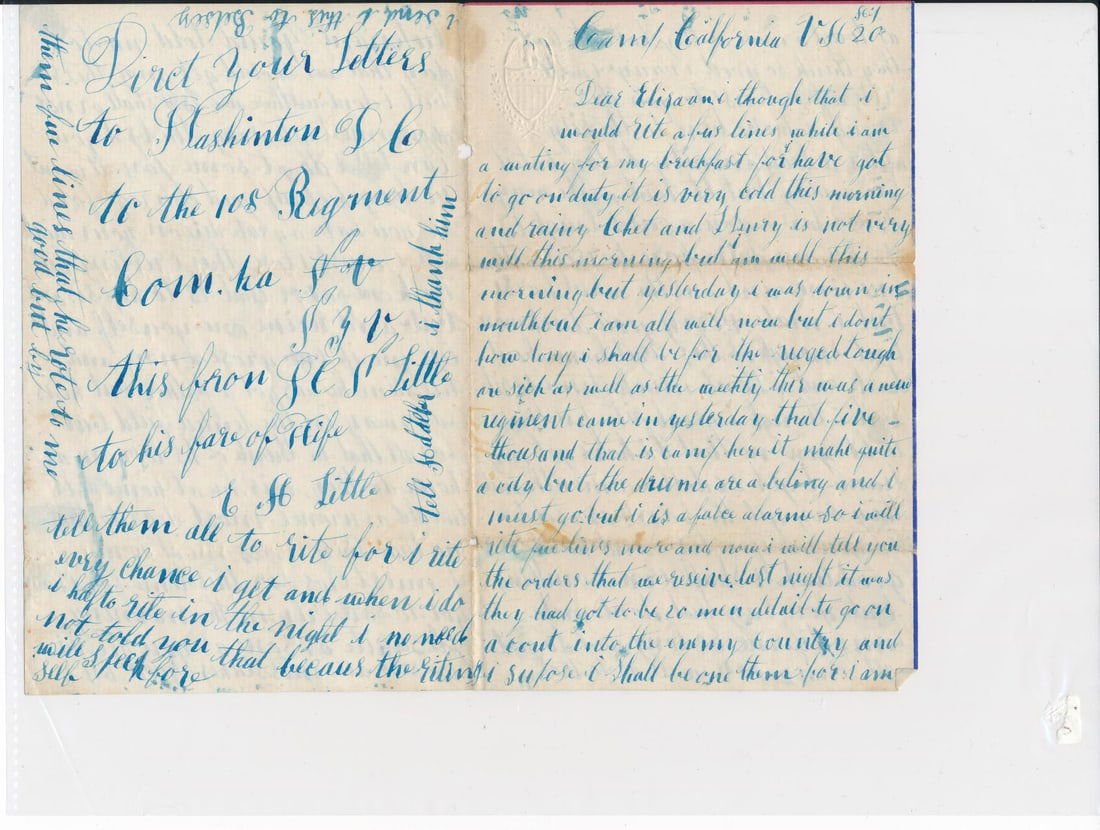 Camp California Va 20
Dear Elizaann though that i
would rite a fus lines while i am
a wating for my breckfast for i have got
to go on duty it is very cold this morning
and rainy Chet and Henry is not very
well this morning but i am well this
morning but yesterday i was down in
mouth but i am all will now but i dont
how long i shall be for the ruged tough
are sick as well as the weekly ther was a new
regment came in yesterday that five
thousand that is camp here it make quite
a city but the drume are a beting and i
must go but i is a falce alarme so i will
rite fue lines more and now i will tell you
the orders that we reseive last night it was
they had got to be 20 men detail to go on
a cout into the enemy country and
i supose i shall be one them for i am
Dirct your Letters
to Washinton D C
to the 108 Regment
Com.ka
N Y V
this fron Little
to his fare of Wife
E H Little
tell them all to rite for i rite
evry chance i get and when i do
i hafto rite in the night i no need
not told you that becaus the riting
will speek fore
self
tell i thank him
them fue lines that he rote to me
good but
i send this to Betsey